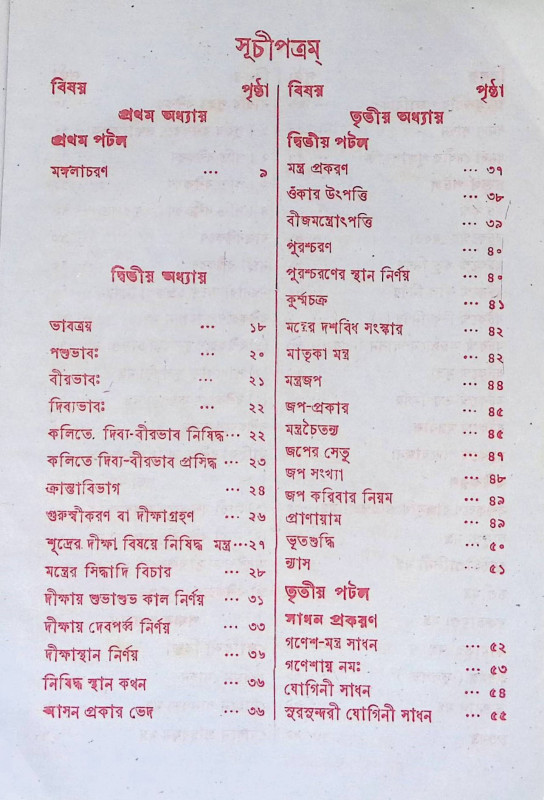 সূচীপত্রম্
বিষয় পৃষ্ঠা
প্রথম অধ্যায়
প্রথম পটল
মঙ্গলাচরণ ··· ৯
দ্বিতীয় অধ্যায়
ভাবত্রয় ··· ১৮
পশুভাবঃ ··· ২০
বীরভাবঃ ··· ২১
দিব্যভাবঃ ··· ২২
কলিতে দিব্য-বীরভাব নিষিদ্ধ··· ২২
কলিতে দিব্য-বীরভাব প্রসিদ্ধ ··· ২৩
ক্রান্তাবিভাগ ··· ২৪
গুরুস্বীকরণ বা দীক্ষাগ্রহণ ··· ২৬
শূদ্রের দীক্ষা বিষয়ে নিষিদ্ধ মন্ত্র ···২৭
মন্ত্রের সিদ্ধাদি বিচার ··· ২৮
দীক্ষায় শুভাশুভ কাল নির্ণয় ··· ৩১
দীক্ষায় দেবপর্ব্ব নির্ণয় ··· ৩৩
দীক্ষাস্থান নির্ণয় ··· ৩৬
নিষিদ্ধ স্থান কথন ··· ৩৬
আসন প্রকার ভেদ ··· ৩৬
বিষয় পৃষ্ঠা
তৃতীয় অধ্যায়
দ্বিতীয় পটল
মন্ত্র প্রকরণ ··· ৩৭
ওঁকার উৎপত্তি ··· ৩৮
বীজমন্ত্রোৎপত্তি ··· ৩৯
পুরশ্চরণ ··· ৪০
পুরশ্চরণের স্থান নির্ণয় ··· ৪০
কুর্ম্মচক্র ··· ৪১
মন্ত্রের দশবিধ সংস্কার ··· ৪২
মাতৃকা মন্ত্র ··· ৪২
মন্ত্রজপ ··· ৪৪
জপ-প্রকার ··· ৪৫
মন্ত্রচৈতন্য ··· ৪৫
জপের সেতু ··· ৪৭
জপ সংখ্যা ··· ৪৮
জপ করিবার নিয়ম ··· ৪৯
প্রাণায়াম ··· ৪৯
ভূতশুদ্ধি ··· ৫০
ন্যাস ··· ৫১
তৃতীয় পটল
সাধন প্রকরণ
গণেশ-মন্ত্র সাধন ··· ৫২
গণেশায় নমঃ ··· ৫৩
যোগিনী সাধন ··· ৫৪
সুরসুন্দরী যোগিনী সাধন ··· ৫৫